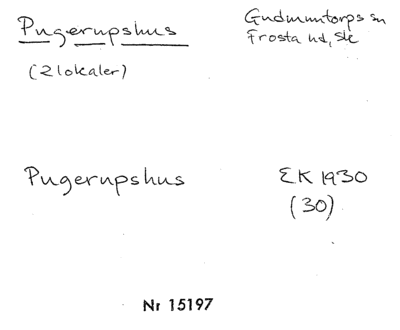 Pugerupshus
Gudmuntorps sn
Frosta hd, Sk
(2 lokaler)
Pugerupshus
EK 1930
(30)
Nr 15197